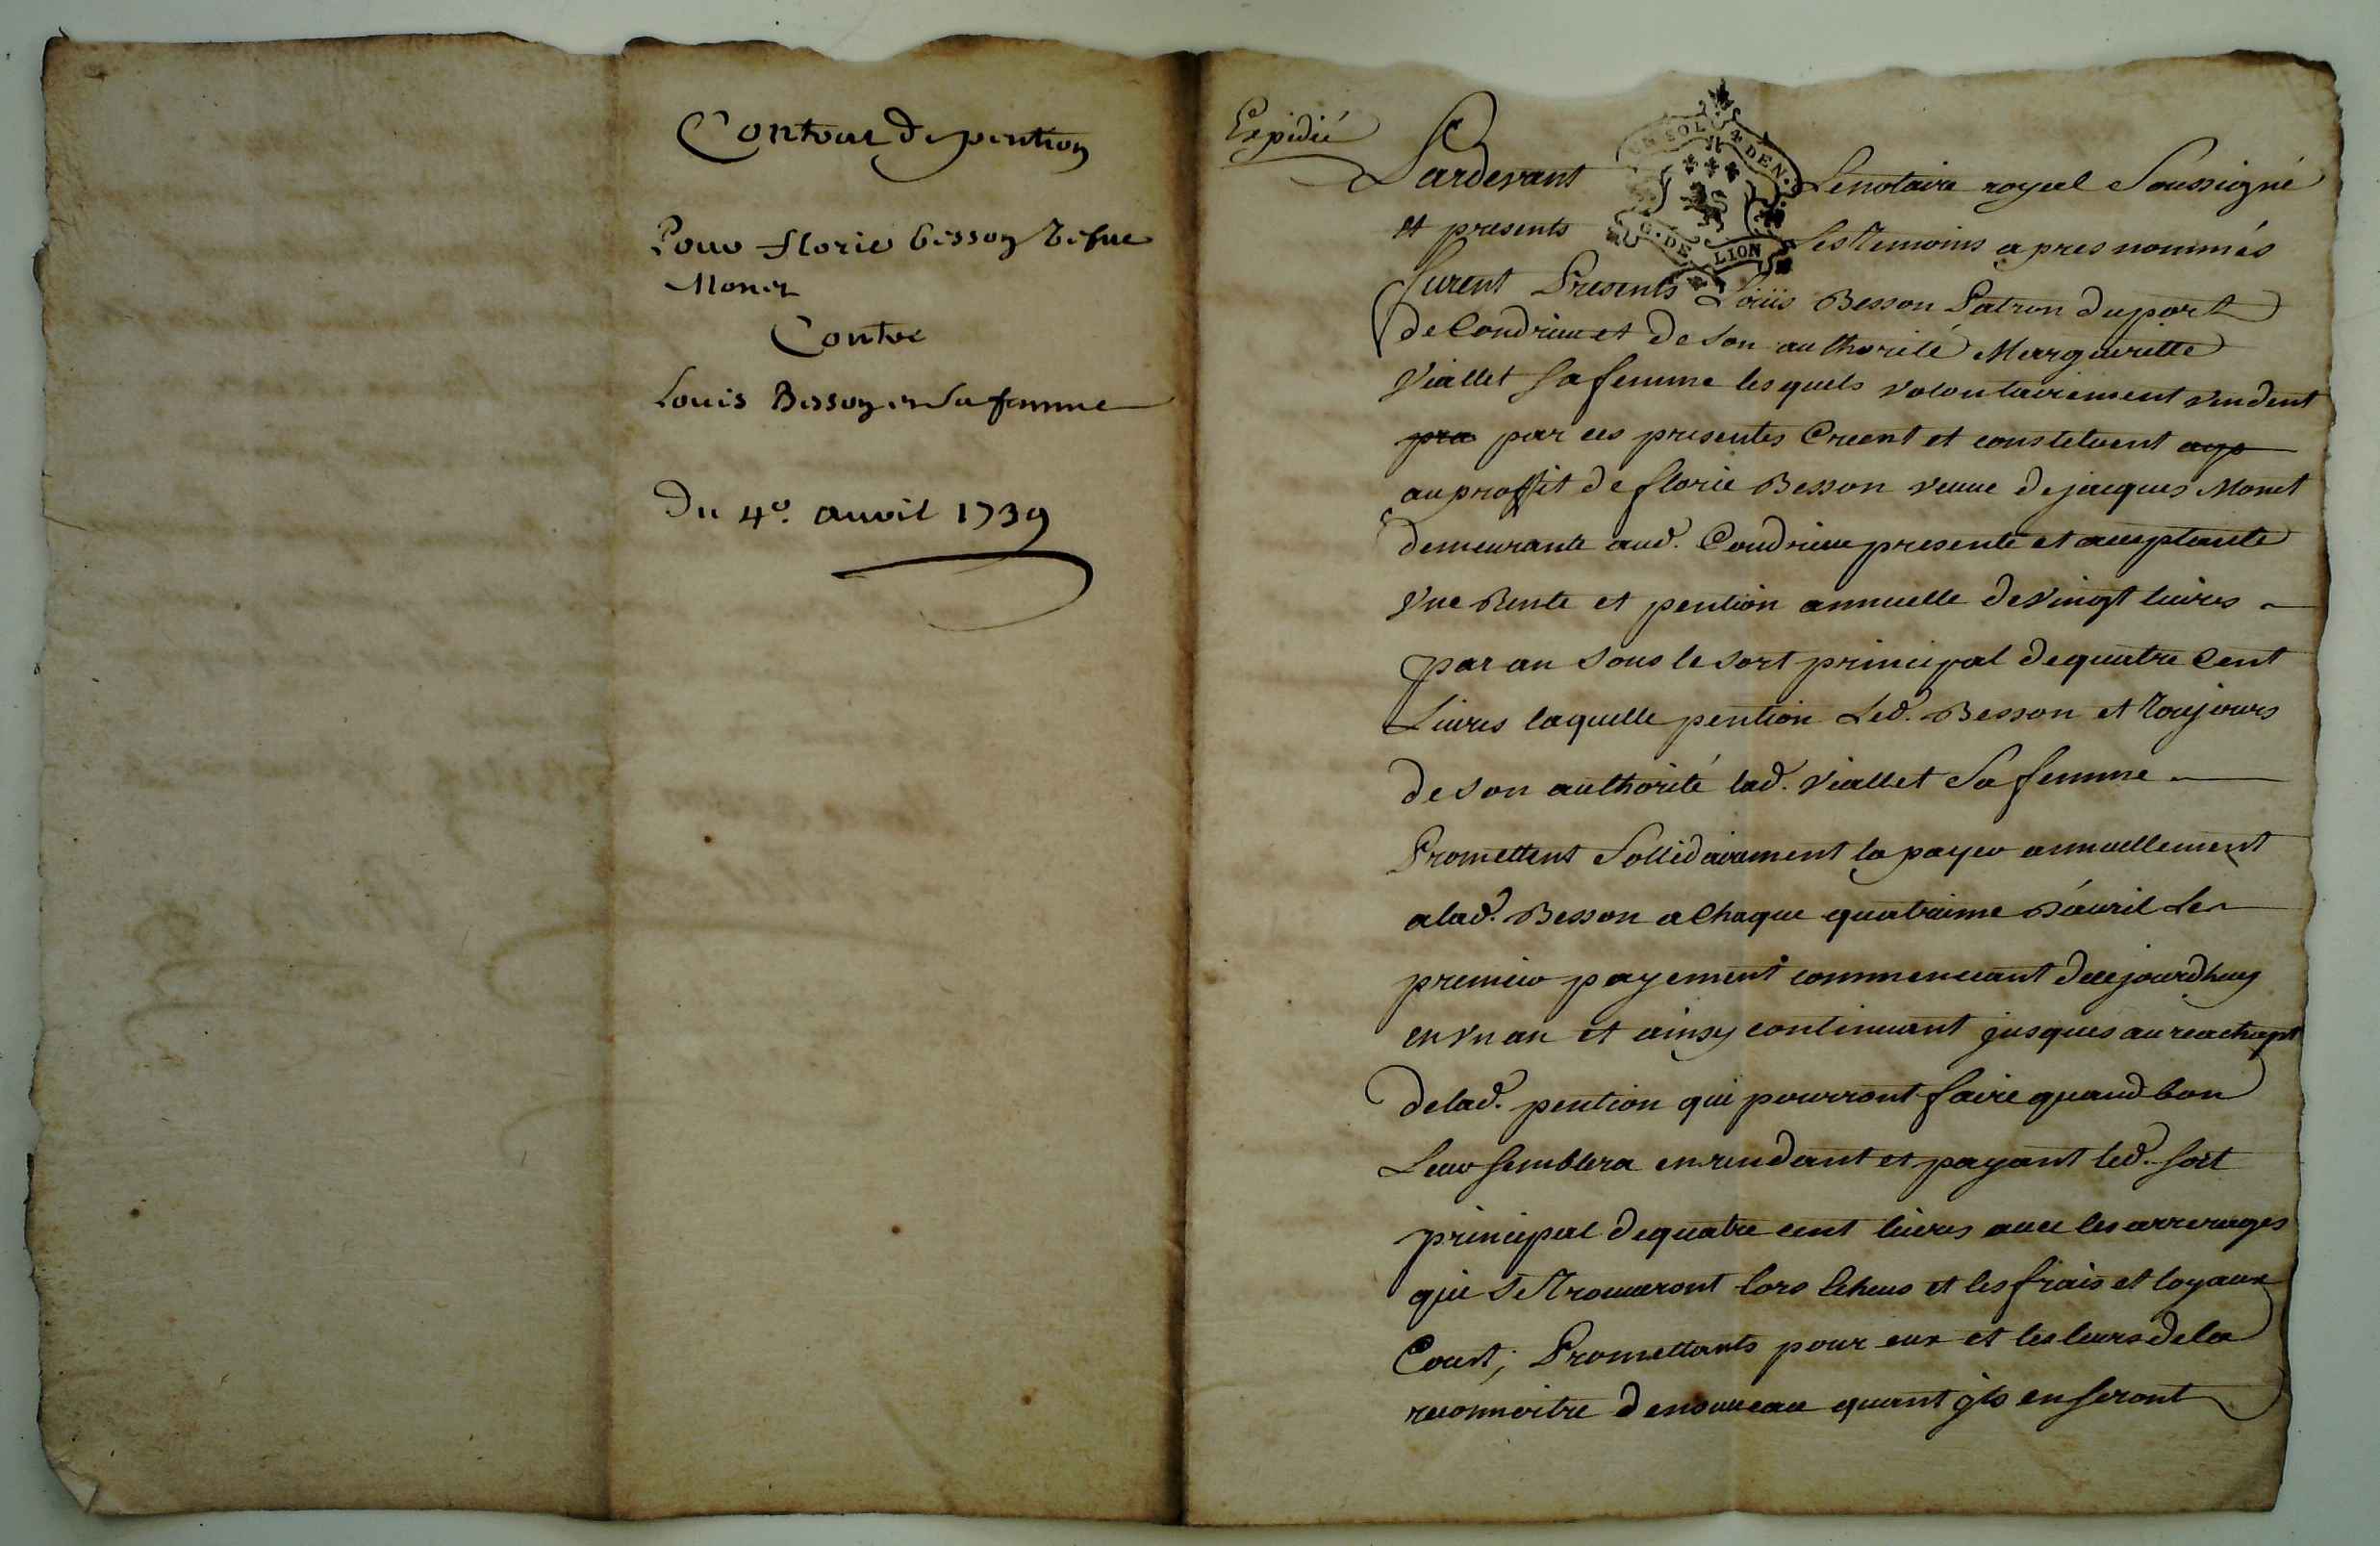 Contract de pention
Pour florie besson vefue
Monet
Contre
Louis Besson et sa femme
Du 4e. auril 1739
Expidié
Pardevant Le notaire royal Soussigné
SOL 4 DEN.
et presents Les temoins apres nommés
G. DE LION
furent Presents Loüis Besson Patron du port
de Condrieu et de son authorité Margueritte
Viallet sa femme lesquels volontairement vendent
pra par ces presentes Creent et constetuent aup
au proffit de florie Besson veuue de jacques Monet
demeurante aud. Condrieu presente et acceptante
Vne Rente et pention annuelle de vingt liures
par an sous le sort principal de quatre Cent
Liures laquelle pention Led. Besson et toujours
de son authorité lad. Viallet Sa femme
Promettent Sollidairement la payer annuellement
a lad. Besson a Chaque quatrieme d'auril Le
premier payement commenceant de cejourdhuy
en vn an et ainsy continuant jusques au reachapt
de lad. pention qui pourront faire quand bon
Leur semblera en rendant et payant led. sort
principal de quatre cent liures auec les arrerages
qui se trouueront lors lcheus et les frais et loyaux
Coust; Promettants pour eux et les leurs de la
reconnoitre de nouueau quant jls en seront